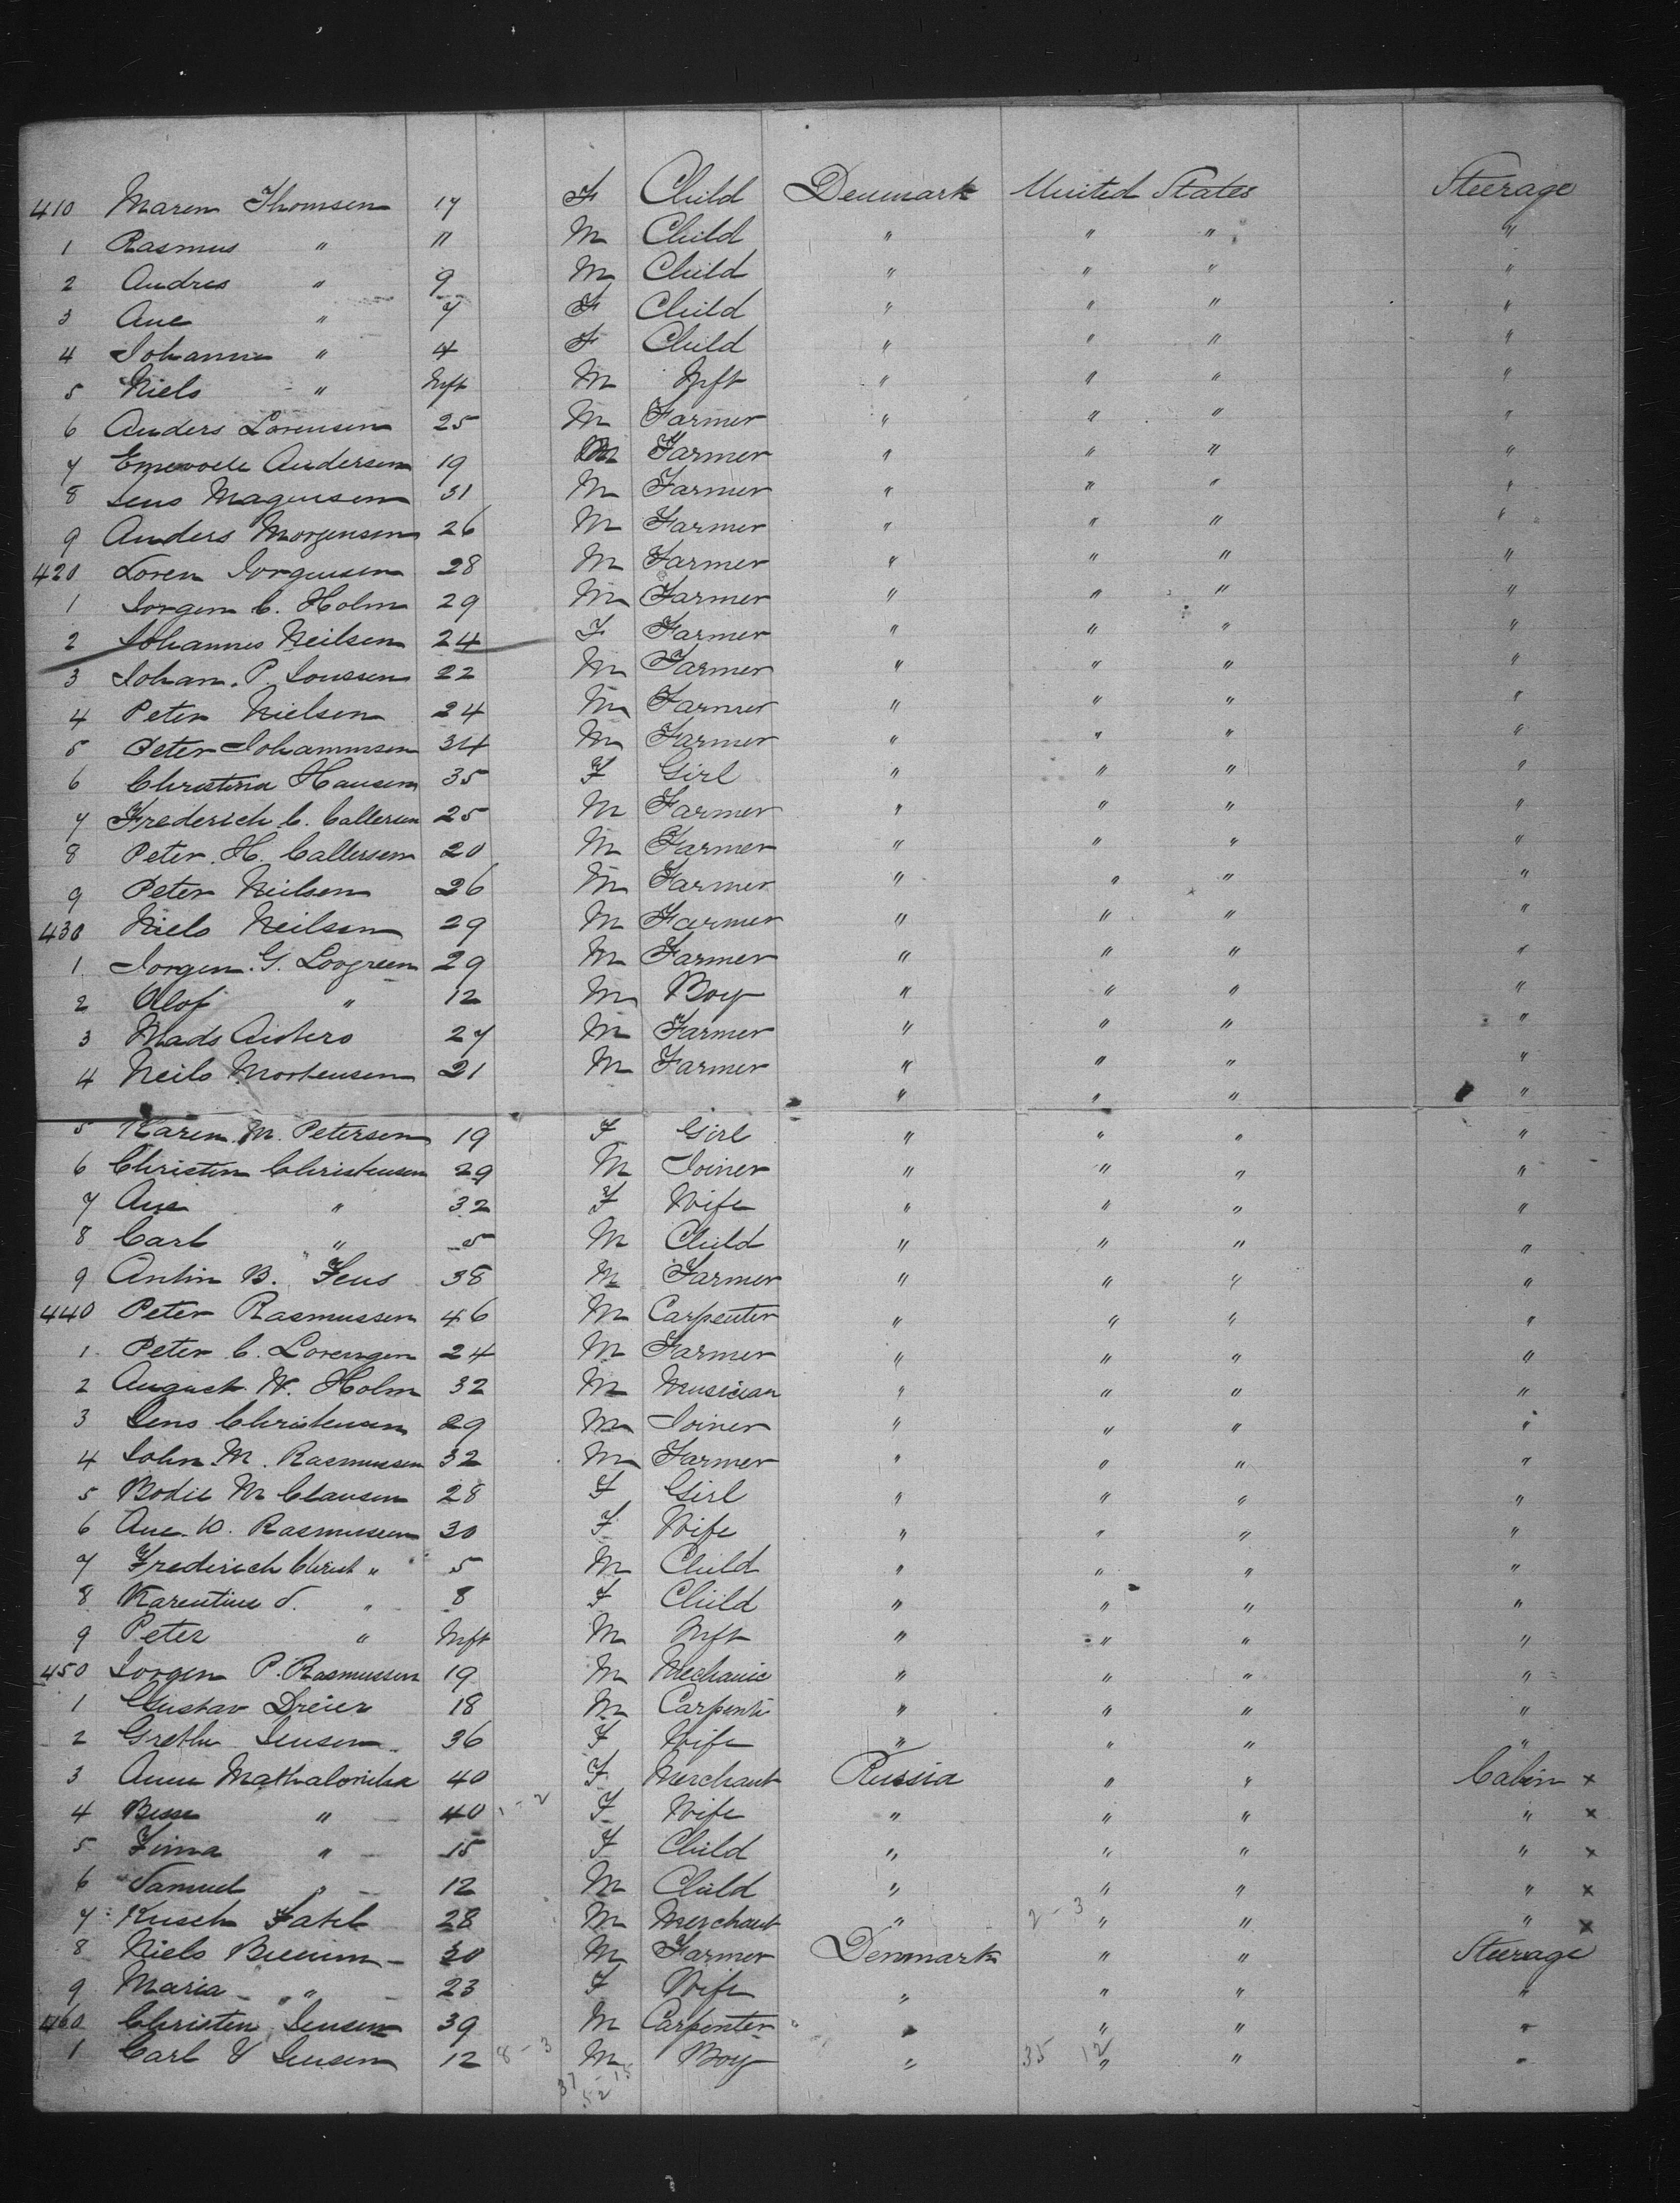 410 Maren Thomsen 17 F Child Denmark United States Steerage
1 Rasmus " 11 M Child " " " "
2 Andres " 9 M Child " " " "
3 Ane " 7 F Child " " " "
4 Johanne " 4 F Child " " " "
5 Niels " Inft M Inft " " " "
6 Anders Lorensen 25 M Farmer " " " "
7 Andersen 19 M Farmer " " " "
8 Jens Magnusen 31 M Farmer " " " "
9 Anders Morgensen 26 M Farmer " " " "
420 Loren Jorgensen 28 M Farmer " " " "
1 Jorgen C. Holm 29 M Farmer " " " "
2 Johannes Neilsen 24 F Farmer " " " "
3 Johan. P. Jonssen 22 M Farmer " " " "
4 Peter Nielsen 24 M Farmer " " " "
5 Peter Johannsen 34 M Farmer " " " "
6 Christina Hansen 35 F Girl " " " "
7 Frederich C. Callersen 25 M Farmer " " " "
8 Peter. H. Callersen 20 M Farmer " " " "
9 Peter Neilsen 26 M Farmer " " " "
430 Niels Neilsen 29 M Farmer " " " "
1 Jorgen. G. Lovgreen 29 M Farmer " " " "
2 Olof " 12 M Boy " " " "
3 Mads 27 M Farmer " " " "
4 Neils Mortensen 21 M Farmer " " " "
" " " "
5 Karen. M. Petersen 19 F Girl " " " "
6 Christen Christensen 29 M Joiner " " " "
7 Ane " 32 F Wife " " " "
8 Carl " 5 M Child " " " "
9 Antin B. Jens 38 M Farmer " " " "
440 Peter Rasmussen 46 M Carpenter " " " "
1 Peter C. Lorengen 24 M Farmer " " " "
2 August. W. Holm 32 M Musician " " " "
3 Jens Christensen 29 M Joiner " " " "
4 John. M. Rasmussen 32 M Farmer " " " "
5 Bodil M Clausen 28 F Girl " " " "
6 Ane. W. Rasmussen 30 F Wife " " " "
7 Frederich Christ " 5 M Child " " " "
8 Karentine J. " 8 F Child " " " "
9 Peter " Inft M Inft " " " "
450 Jorgen P. Rasmussen 19 M Mechanic " " " "
1 Gustav Dreier 18 M Carpente " " " "
2 Grethe Jensen 36 F Wife " " " "
3 Anne 40 F Merchant Russia " " Cabin x
4 " 40 1-2 F Wife " " " " x
5 " 15 F Child " " " " x
6 Samuel " 12 M Child " " " " x
7 28 M Merchant " 2-3 " " " x
8 Niels 30 M Farmer Denmark " " Steerage
9 Maria " 23 F Wife " " " "
460 Christen Jensen 39 M Carpenter " " " "
1 Carl V Jensen 12 8-3 M Boy " 35 12 " " "
37 52 15